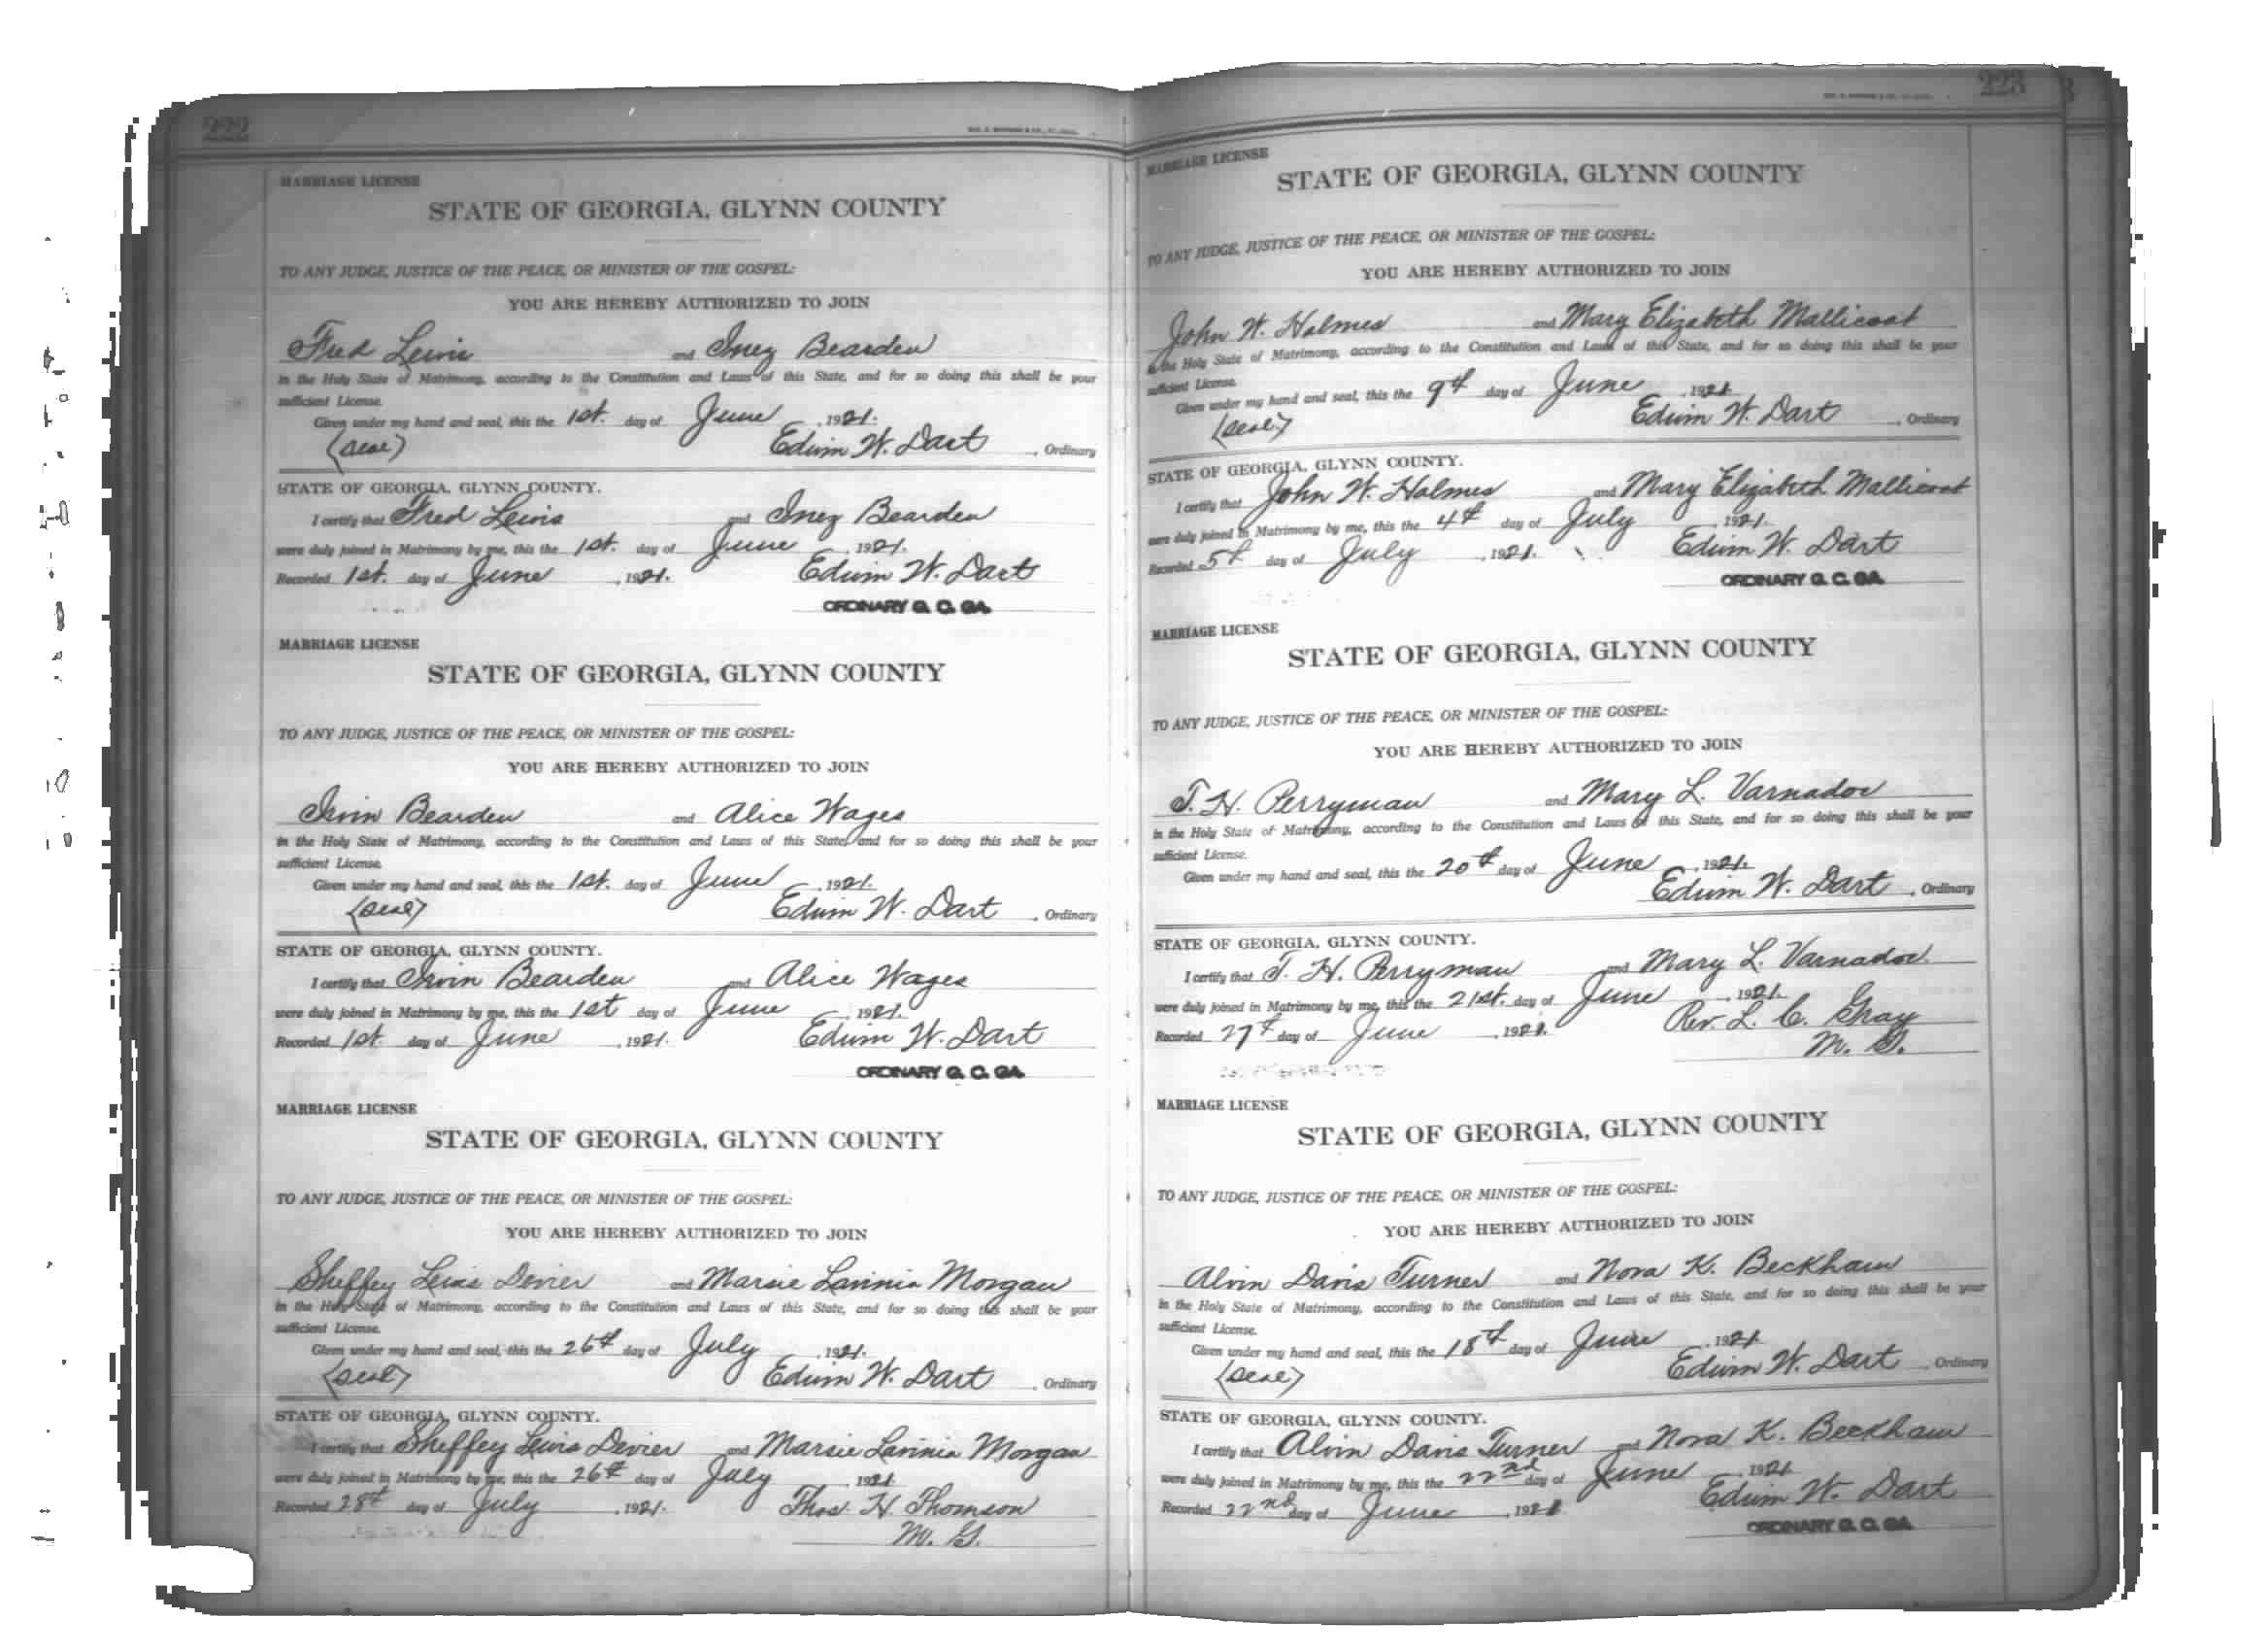 222
MARRIAGE LICENSE
STATE OF GEORGIA, GLYNN COUNTY
TO ANY JUDGE, JUSTICE OF THE PEACE, OR MINISTER OF THE GOSPEL:
YOU ARE HEREBY AUTHORIZED TO JOIN
Fred Lewis and Inez Bearden
in the Holy State of Matrimony, according to the Constitution and Laws of this State, and for so doing this shall be your
sufficient License.
Given under my hand and seal, this the 1st. day of June, 1921.
(Seal) Edwin W. Dart, Ordinary
STATE OF GEORGIA, GLYNN COUNTY.
I certify that Fred Lewis and Inez Bearden
were duly joined in Matrimony by me, this the 1st. day of June, 1921.
Recorded 1st. day of June, 1921. Edwin W. Dart
ORDINARY G. C. GA.
MARRIAGE LICENSE
STATE OF GEORGIA, GLYNN COUNTY
TO ANY JUDGE, JUSTICE OF THE PEACE, OR MINISTER OF THE GOSPEL:
YOU ARE HEREBY AUTHORIZED TO JOIN
Irvin Bearden and Alice Wages
in the Holy State of Matrimony, according to the Constitution and Laws of this State, and for so doing this shall be your
sufficient License.
Given under my hand and seal, this the 1st. day of June, 1921.
(Seal) Edwin W. Dart, Ordinary
STATE OF GEORGIA, GLYNN COUNTY.
I certify that Irvin Bearden and Alice Wages
were duly joined in Matrimony by me, this the 1st day of June, 1921.
Recorded 1st. day of June, 1921. Edwin W. Dart
ORDINARY G. C. GA.
MARRIAGE LICENSE
STATE OF GEORGIA, GLYNN COUNTY
TO ANY JUDGE, JUSTICE OF THE PEACE, OR MINISTER OF THE GOSPEL:
YOU ARE HEREBY AUTHORIZED TO JOIN
Sheffey Lewis Devier and Marsie Lavinia Morgan
in the Holy State of Matrimony, according to the Constitution and Laws of this State, and for so doing this shall be your
sufficient License.
Given under my hand and seal, this the 26th day of July, 1921.
(Seal) Edwin W. Dart, Ordinary
STATE OF GEORGIA, GLYNN COUNTY.
I certify that Sheffey Lewis Devier and Marsie Lavinia Morgan
were duly joined in Matrimony by me, this the 26th day of July, 1921
Recorded 28th day of July, 1921. Thos. H. Thomson
M. G.
223
MARRIAGE LICENSE
STATE OF GEORGIA, GLYNN COUNTY
TO ANY JUDGE, JUSTICE OF THE PEACE, OR MINISTER OF THE GOSPEL:
YOU ARE HEREBY AUTHORIZED TO JOIN
John W. Holmes and Mary Elizabeth Mallicoat
in the Holy State of Matrimony, according to the Constitution and Laws of this State, and for so doing this shall be your
sufficient License.
Given under my hand and seal, this the 9th day of June, 1921
(Seal) Edwin W. Dart, Ordinary
STATE OF GEORGIA, GLYNN COUNTY.
I certify that John W. Holmes and Mary Elizabeth Mallicoat
were duly joined in Matrimony by me, this the 4th day of July, 1921.
Recorded 5th day of July, 1921. Edwin W. Dart
ORDINARY G. C. GA.
MARRIAGE LICENSE
STATE OF GEORGIA, GLYNN COUNTY
TO ANY JUDGE, JUSTICE OF THE PEACE, OR MINISTER OF THE GOSPEL:
YOU ARE HEREBY AUTHORIZED TO JOIN
T. H. Perryman and Mary L. Varnadoe
in the Holy State of Matrimony, according to the Constitution and Laws of this State, and for so doing this shall be your
sufficient License.
Given under my hand and seal, this the 20th day of June, 1921.
Edwin W. Dart, Ordinary
STATE OF GEORGIA, GLYNN COUNTY.
I certify that T. H. Perryman and Mary L. Varnadoe
were duly joined in Matrimony by me, this the 21st. day of June, 1921.
Recorded 27th day of June, 1921. Rev. L. C. Gray
M. G.
MARRIAGE LICENSE
STATE OF GEORGIA, GLYNN COUNTY
TO ANY JUDGE, JUSTICE OF THE PEACE, OR MINISTER OF THE GOSPEL:
YOU ARE HEREBY AUTHORIZED TO JOIN
Alvin Davis Turner and Nora K. Beckham
in the Holy State of Matrimony, according to the Constitution and Laws of this State, and for so doing this shall be your
sufficient License.
Given under my hand and seal, this the 18th day of June, 1921
(Seal) Edwin W. Dart, Ordinary
STATE OF GEORGIA, GLYNN COUNTY.
I certify that Alvin Davis Turner and Nora K. Beckham
were duly joined in Matrimony by me, this the 22nd day of June, 1921
Recorded 22nd day of June, 1921 Edwin W. Dart
ORDINARY G. C. GA.